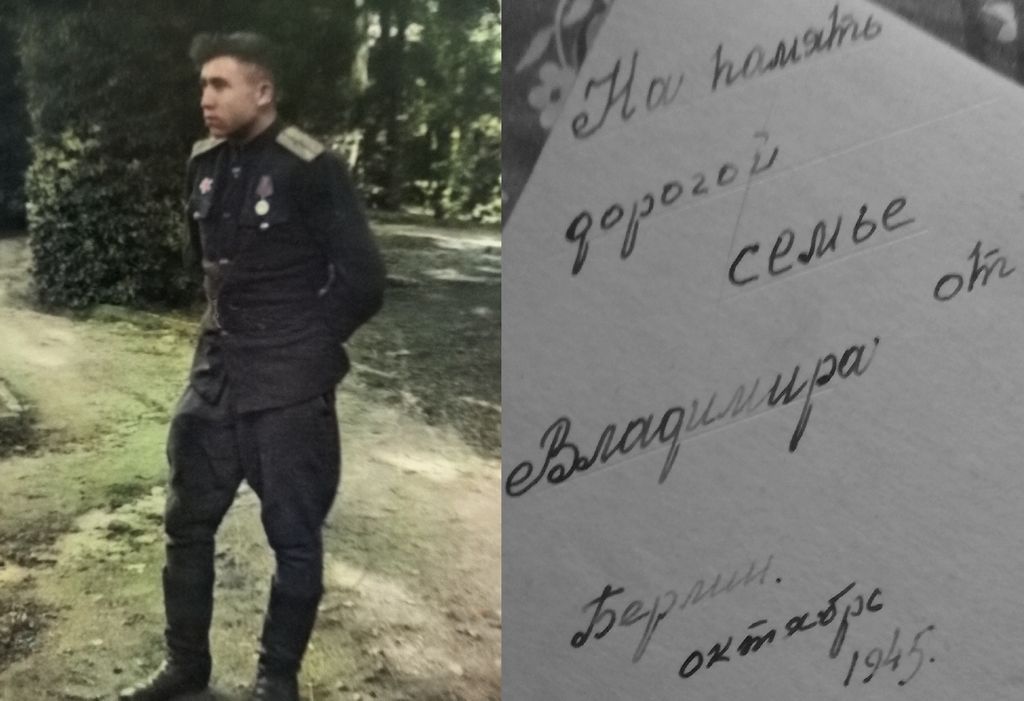 На память
дорогой
семье
от
Владимира
Берлин.
октябрь
1945.